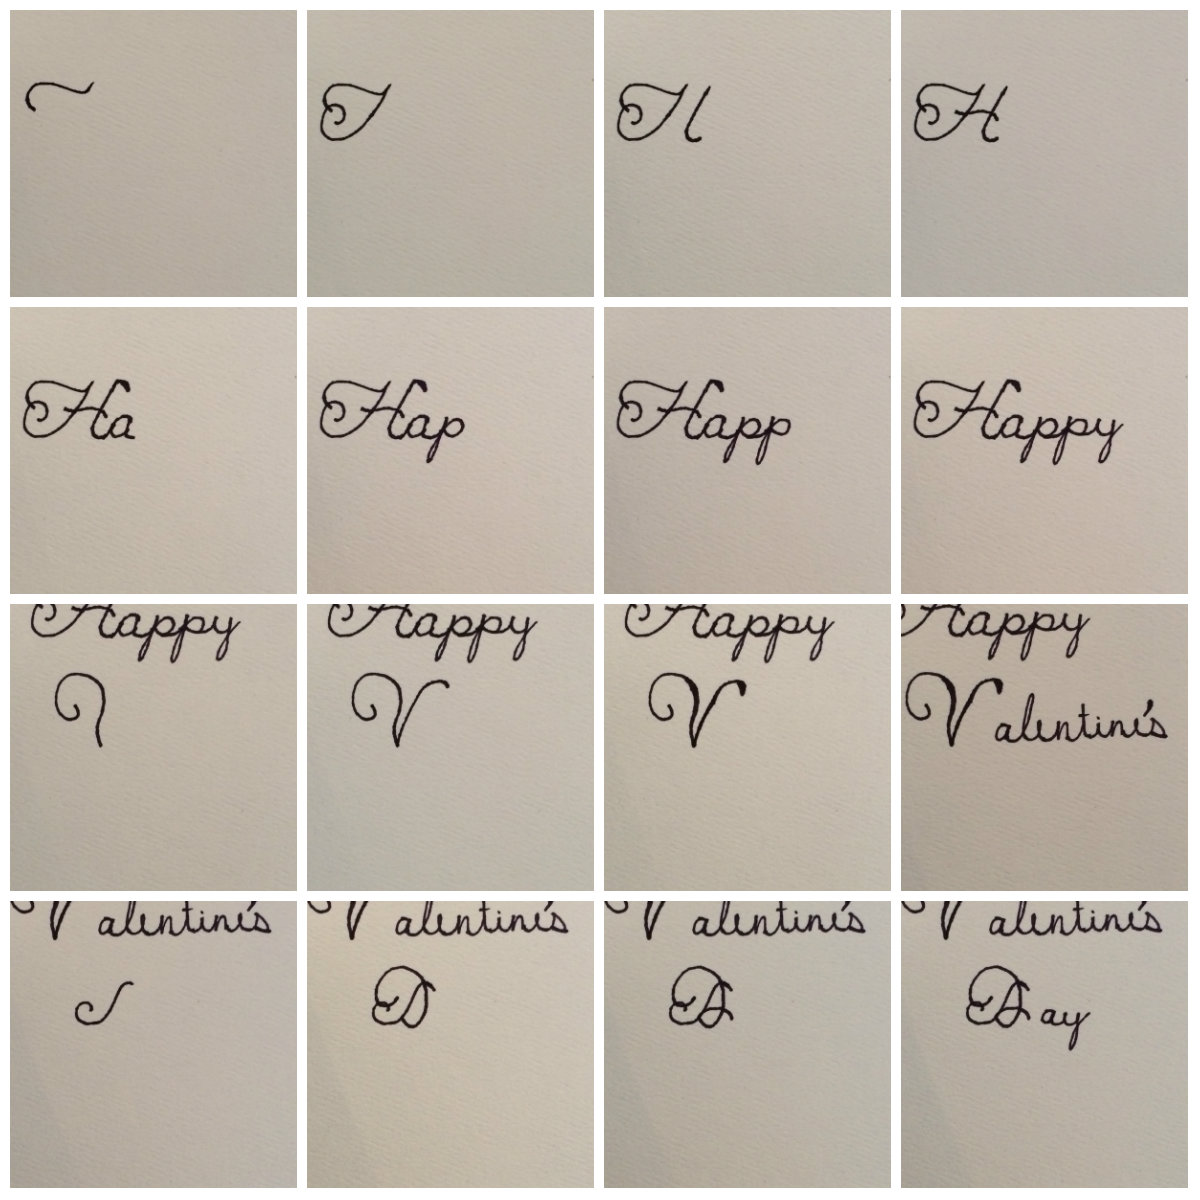 H
Ha
Hap
Happ
Happy
Happy
Happy
V
Happy
V
Happy
Valentine's
Valentine's
Valentine's
D
Valentine's
D
Valentine's
Day